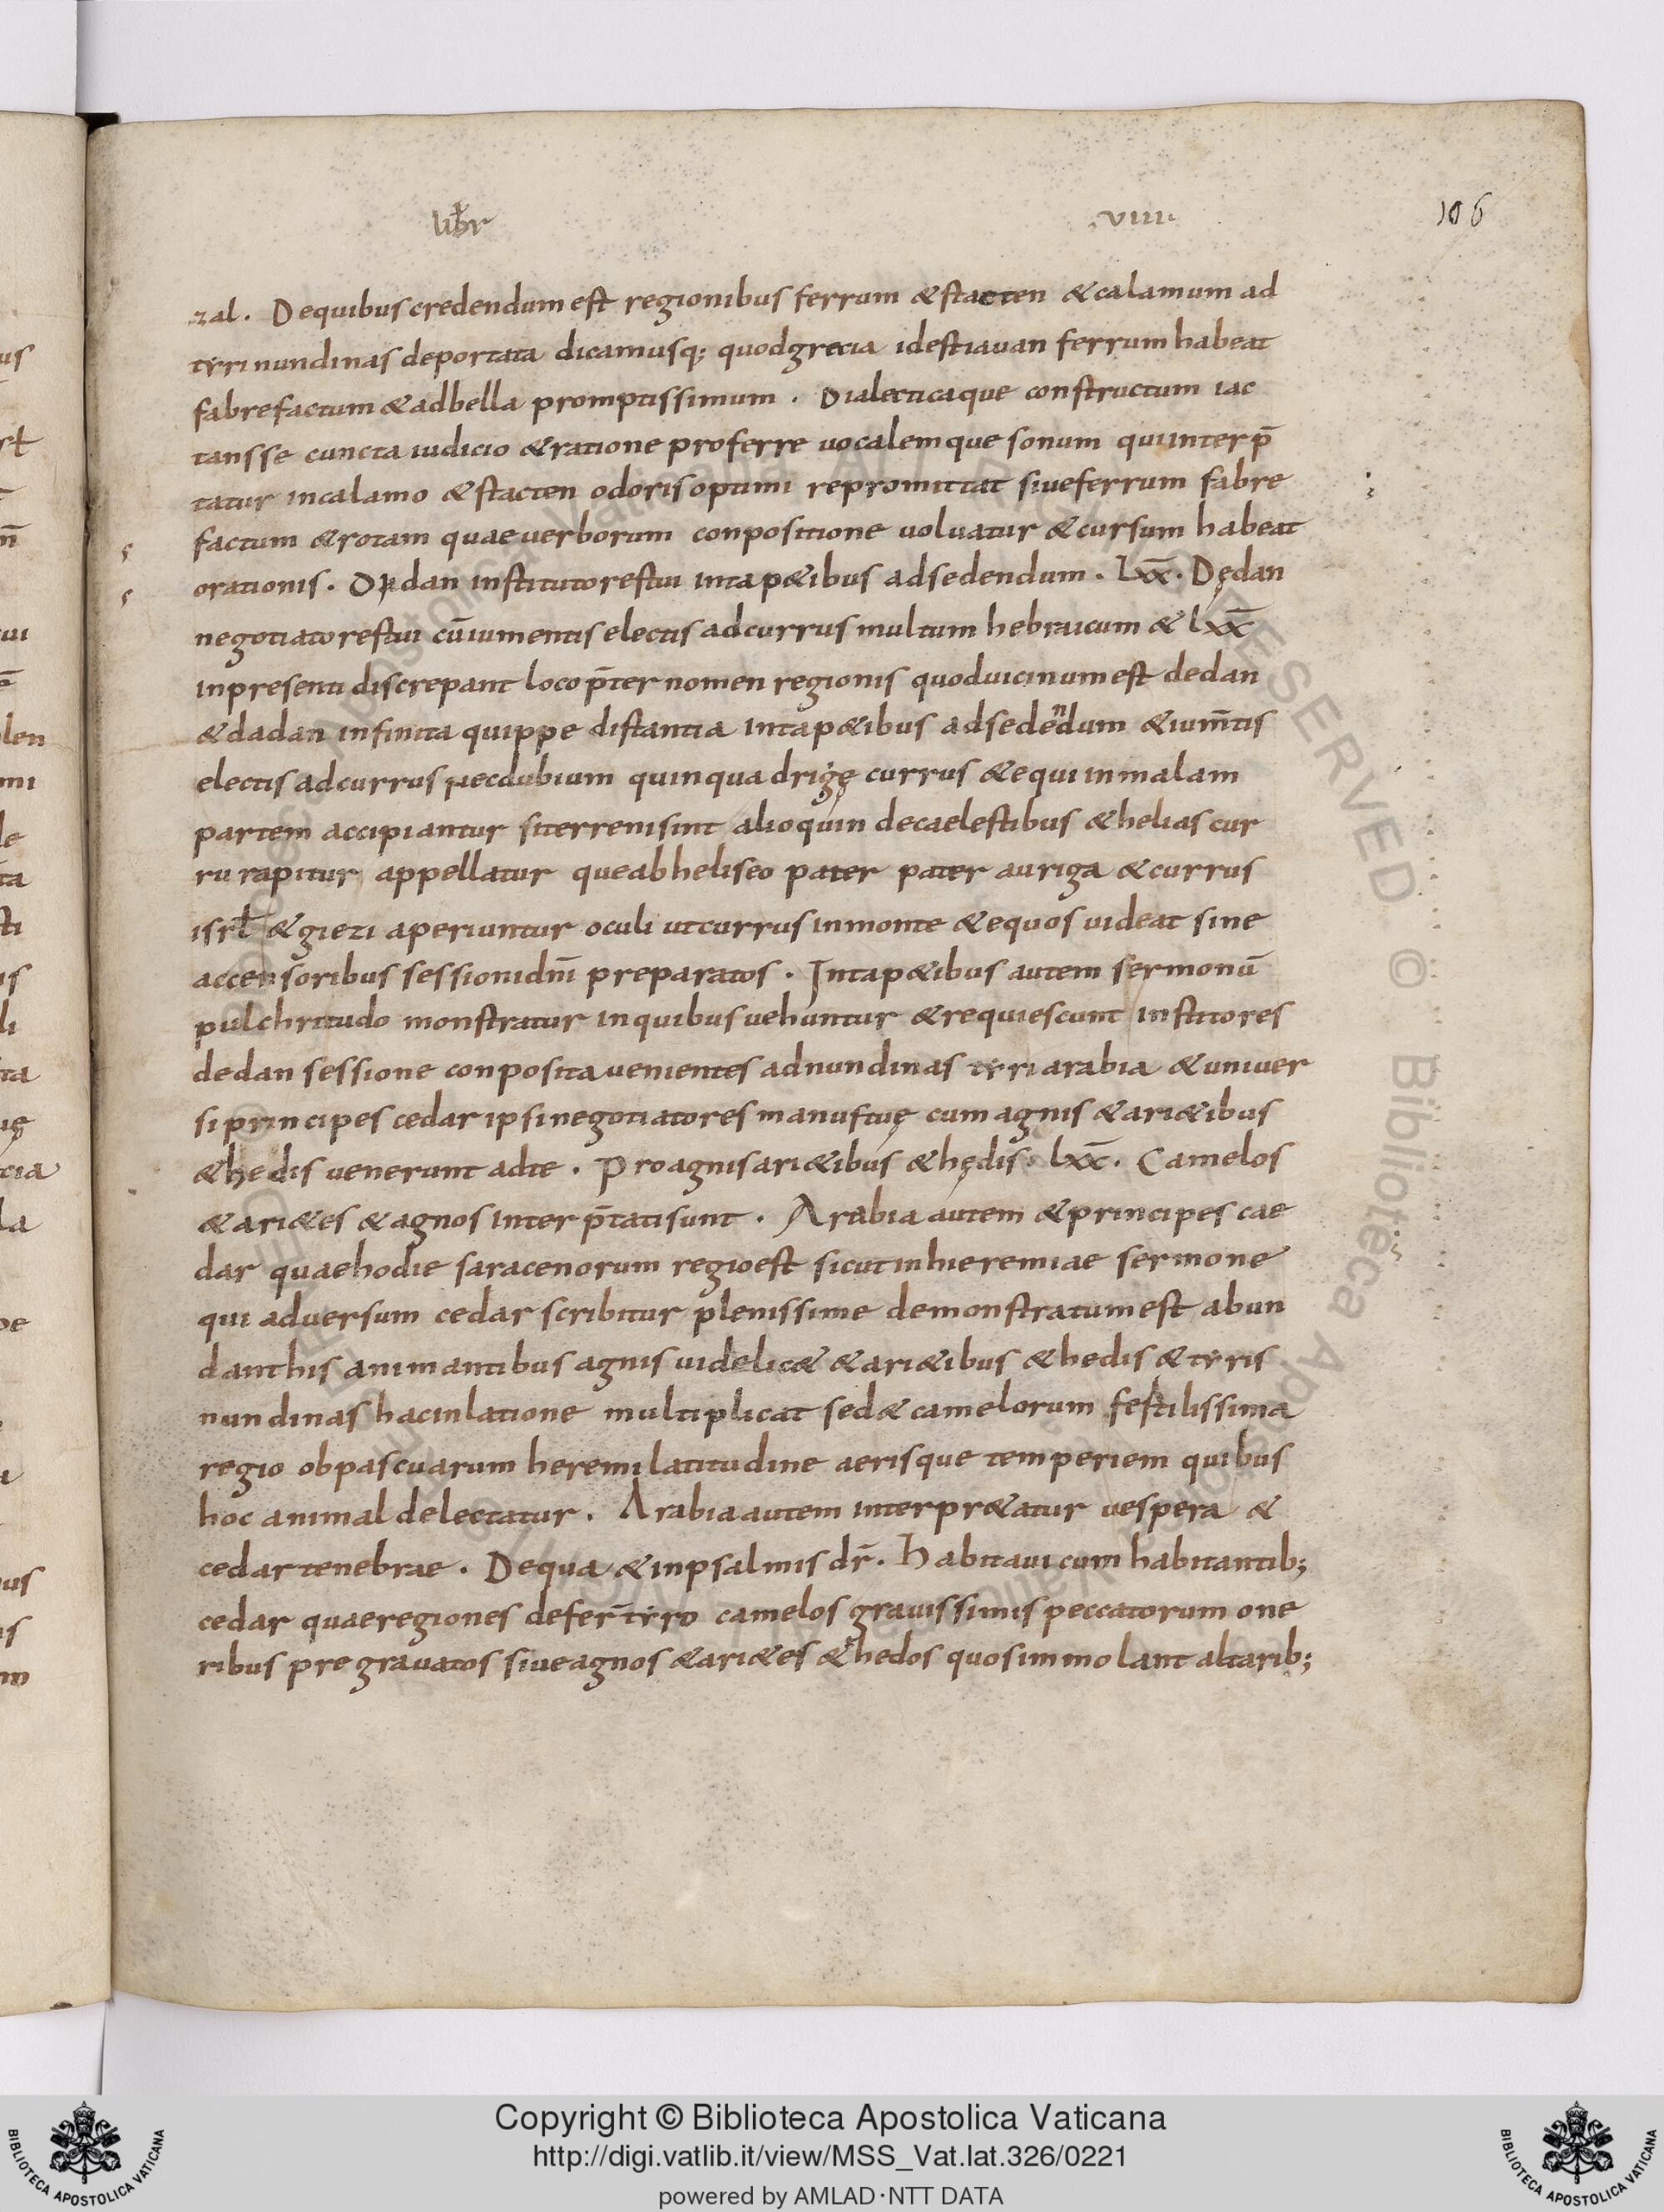 libr .viiii. 106
zal. De quibus credendum est regionibus ferrum & stacten & calamum ad
tyri nundinas deportata dicamusq; quod grecia id est iavan ferrum habeat
fabrefactum & ad bella promptissimum. Dialecticaque constructum iac
tansse cuncta iudicio & ratione proferre vocalemque sonum qui interp̄
tatur in calamo & stacten odoris optimi repromittat sive ferrum fabre
factum & rotam quae verborum conpositione voluatur & cursum habeat
orationis. Dedan institutores tui in tap&ibus ad sedendum. Lxx̄. Dędan
negotiatores tui cū iumentis electis ad currus multum hebraicum & lxx̄
in presenti discrepant loco p̄ter nomen regionis quod vicinum est dedan
& dadan infinita quippe distantia in tap&ibus ad sedendum & ium̄tis
electis ad currus nec dubium quin quadrigę currus & equi in malam
partem accipiantur si terreni sint alioquin de caelestibus & helias cur
ru rapitur appellatur que ab heliseo pater pater auriga & currus
isrł & giezi aperiuntur oculi ut currus in monte & equos videat sine
accensoribus sessioni dn̄i preparatos. In tap&ibus autem sermonū
pulchritudo monstratur in quibus vehuntur & requiescunt institores
dedan sessione conposita venientes ad nundinas tyri arabia & univer
si principes cedar ipsi negotiatores manus tuę cum agnis & ari&ibus
& hedis venerunt ad te. Pro agnis ari&ibus & hędis. lxx̄. Camelos
& ari&es & agnos interp̄tati sunt. Arabia autem & principes cae
dar quae hodie saracenorum regio est sicut in hieremiae sermone
qui adversum cedar scribitur plenissime demonstratum est abun
dant his animantibus agnis videlic& & ari&ibus & hedis & tyris
nundinas hac inlatione multiplicat sed & camelorum festilissima
regio ob pascuarum heremi latitudine aerisque temperiem quibus
hoc animal delectatur. Arabia autem interpr&atur vespera &
cedar tenebrae. De qua & in psalmis dr̄. Habitavi cum habitantib;
cedar quae regiones defer̄ tyro camelos gravissimis peccatorum one
ribus pregravatos sive agnos & ari&es & hedos quos immolant altarib;
Copyright © Biblioteca Apostolica Vaticana
http://digi.vatlib.it/view/MSS_Vat.lat.326/0221
powered by AMLAD·NTT DATA
BIBLIOTECA APOSTOLICA VATICANA
BIBLIOTECA APOSTOLICA VATICANA